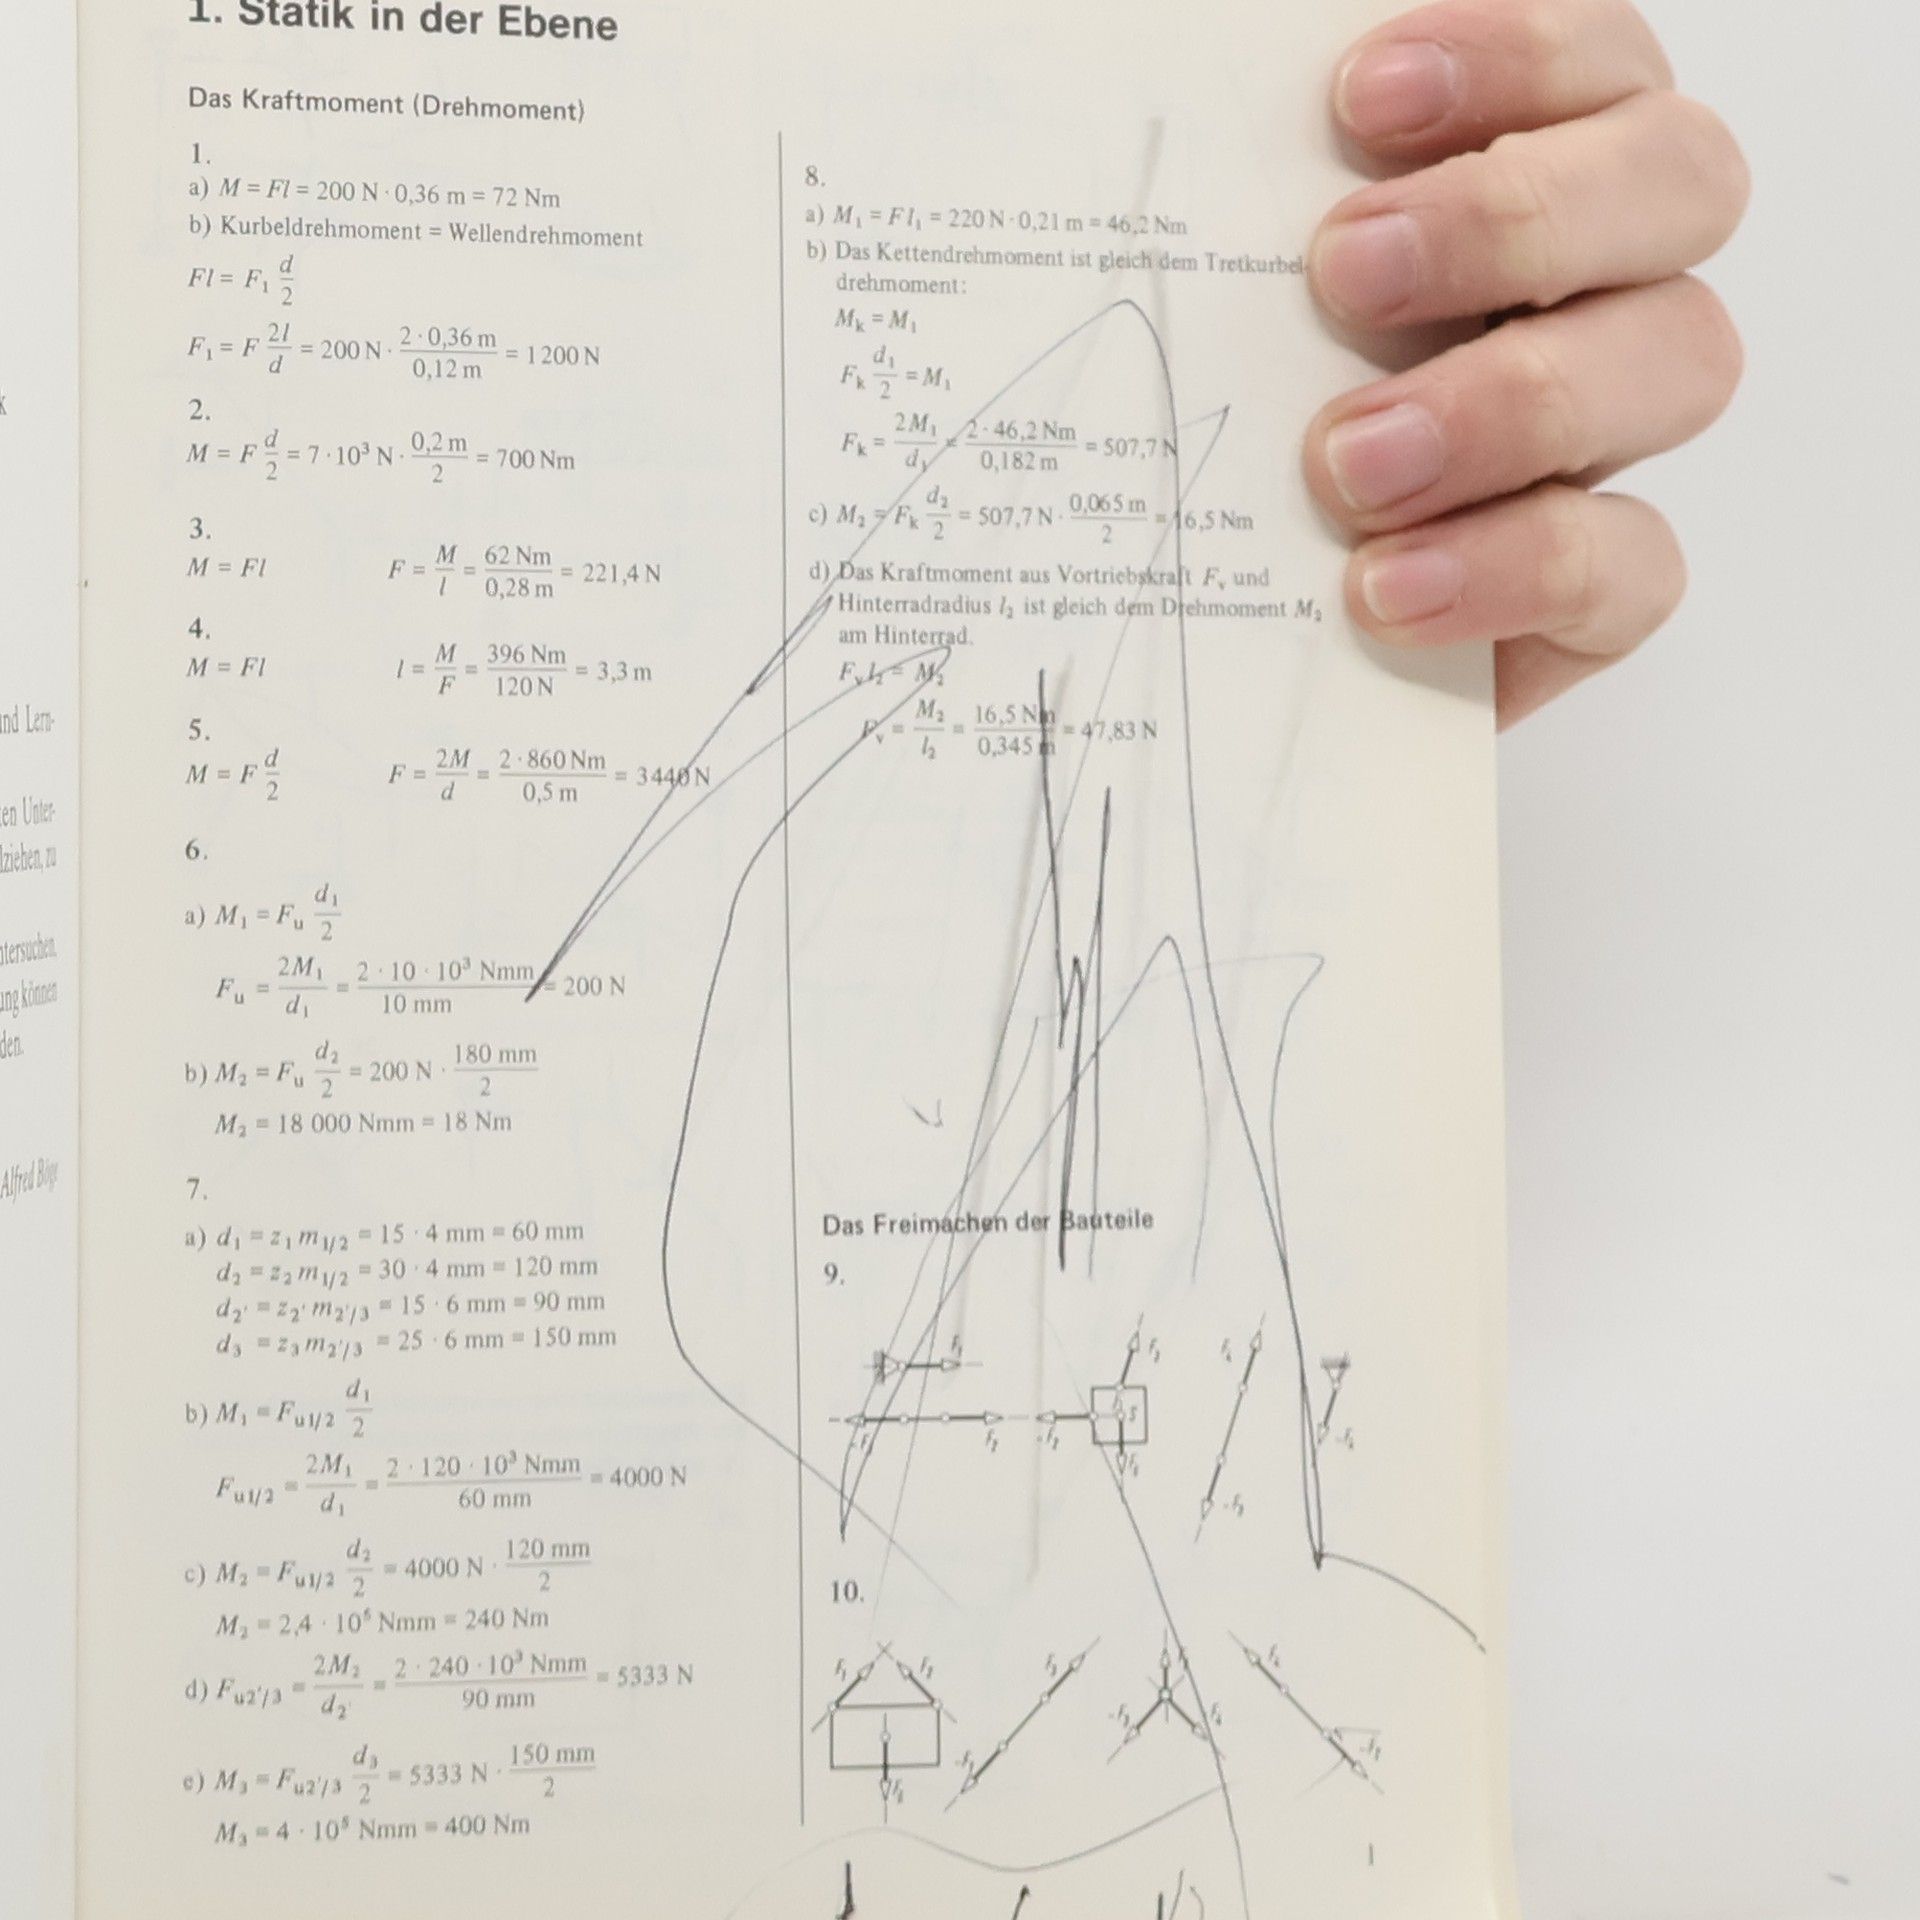 1. Statik in der Ebene
Das Kraftmoment (Drehmoment)
1.
a) M = Fl = 200 N · 0,36 m = 72 Nm
b) Kurbeldrehmoment = Wellendrehmoment
Fl = F₁ d/2
F₁ = F 2l/d = 200 N · 2 · 0,36 m/0,12 m = 1200 N
2.
M = F d/2 = 7 · 10³ N · 0,2 m/2 = 700 Nm
3.
M = Fl F = M/l = 62 Nm/0,28 m = 221,4 N
4.
M = Fl l = M/F = 396 Nm/120 N = 3,3 m
5.
M = F d/2 F = 2M/d = 2 · 860 Nm/0,5 m = 3440 N
6.
a) M₁ = Fᵤ d₁/2
Fᵤ = 2M₁/d₁ = 2 · 10 · 10³ Nmm/10 mm = 200 N
b) M₂ = Fᵤ d₂/2 = 200 N · 180 mm/2
M₂ = 18 000 Nmm = 18 Nm
7.
a) d₁ = z₁ m₁/₂ = 15 · 4 mm = 60 mm
d₂ = z₂ m₁/₂ = 30 · 4 mm = 120 mm
d₂' = z₂' m₂'/₃ = 15 · 6 mm = 90 mm
d₃ = z₃ m₂'/₃ = 25 · 6 mm = 150 mm
b) M₁ = Fᵤ₁/₂ d₁/2
Fᵤ₁/₂ = 2M₁/d₁ = 2 · 120 · 10³ Nmm/60 mm = 4000 N
c) M₂ = Fᵤ₁/₂ d₂/2 = 4000 N · 120 mm/2
M₂ = 2,4 · 10⁵ Nmm = 240 Nm
d) Fᵤ₂'/₃ = 2M₂/d₂' = 2 · 240 · 10³ Nmm/90 mm = 5333 N
e) M₃ = Fᵤ₂'/₃ d₃/2 = 5333 N · 150 mm/2
M₃ = 4 · 10⁵ Nmm = 400 Nm
8.
a) M₁ = Fl₁ = 220 N · 0,21 m = 46,2 Nm
b) Das Kettendrehmoment ist gleich dem Tretkurbel-
drehmoment:
Mₖ = M₁
Fₖ d₁/2 = M₁
Fₖ = 2M₁/d₁ = 2 · 46,2 Nm/0,182 m = 507,7 N
c) M₂ = Fₖ d₂/2 = 507,7 N · 0,065 m/2 = 16,5 Nm
d) Das Kraftmoment aus Vortriebskraft Fᵥ und
Hinterradradius l₂ ist gleich dem Drehmoment M₂
am Hinterrad.
Fᵥ l₂ = M₂
Fᵥ = M₂/l₂ = 16,5 Nm/0,345 m = 47,83 N
Das Freimachen der Bauteile
9.
10.
1